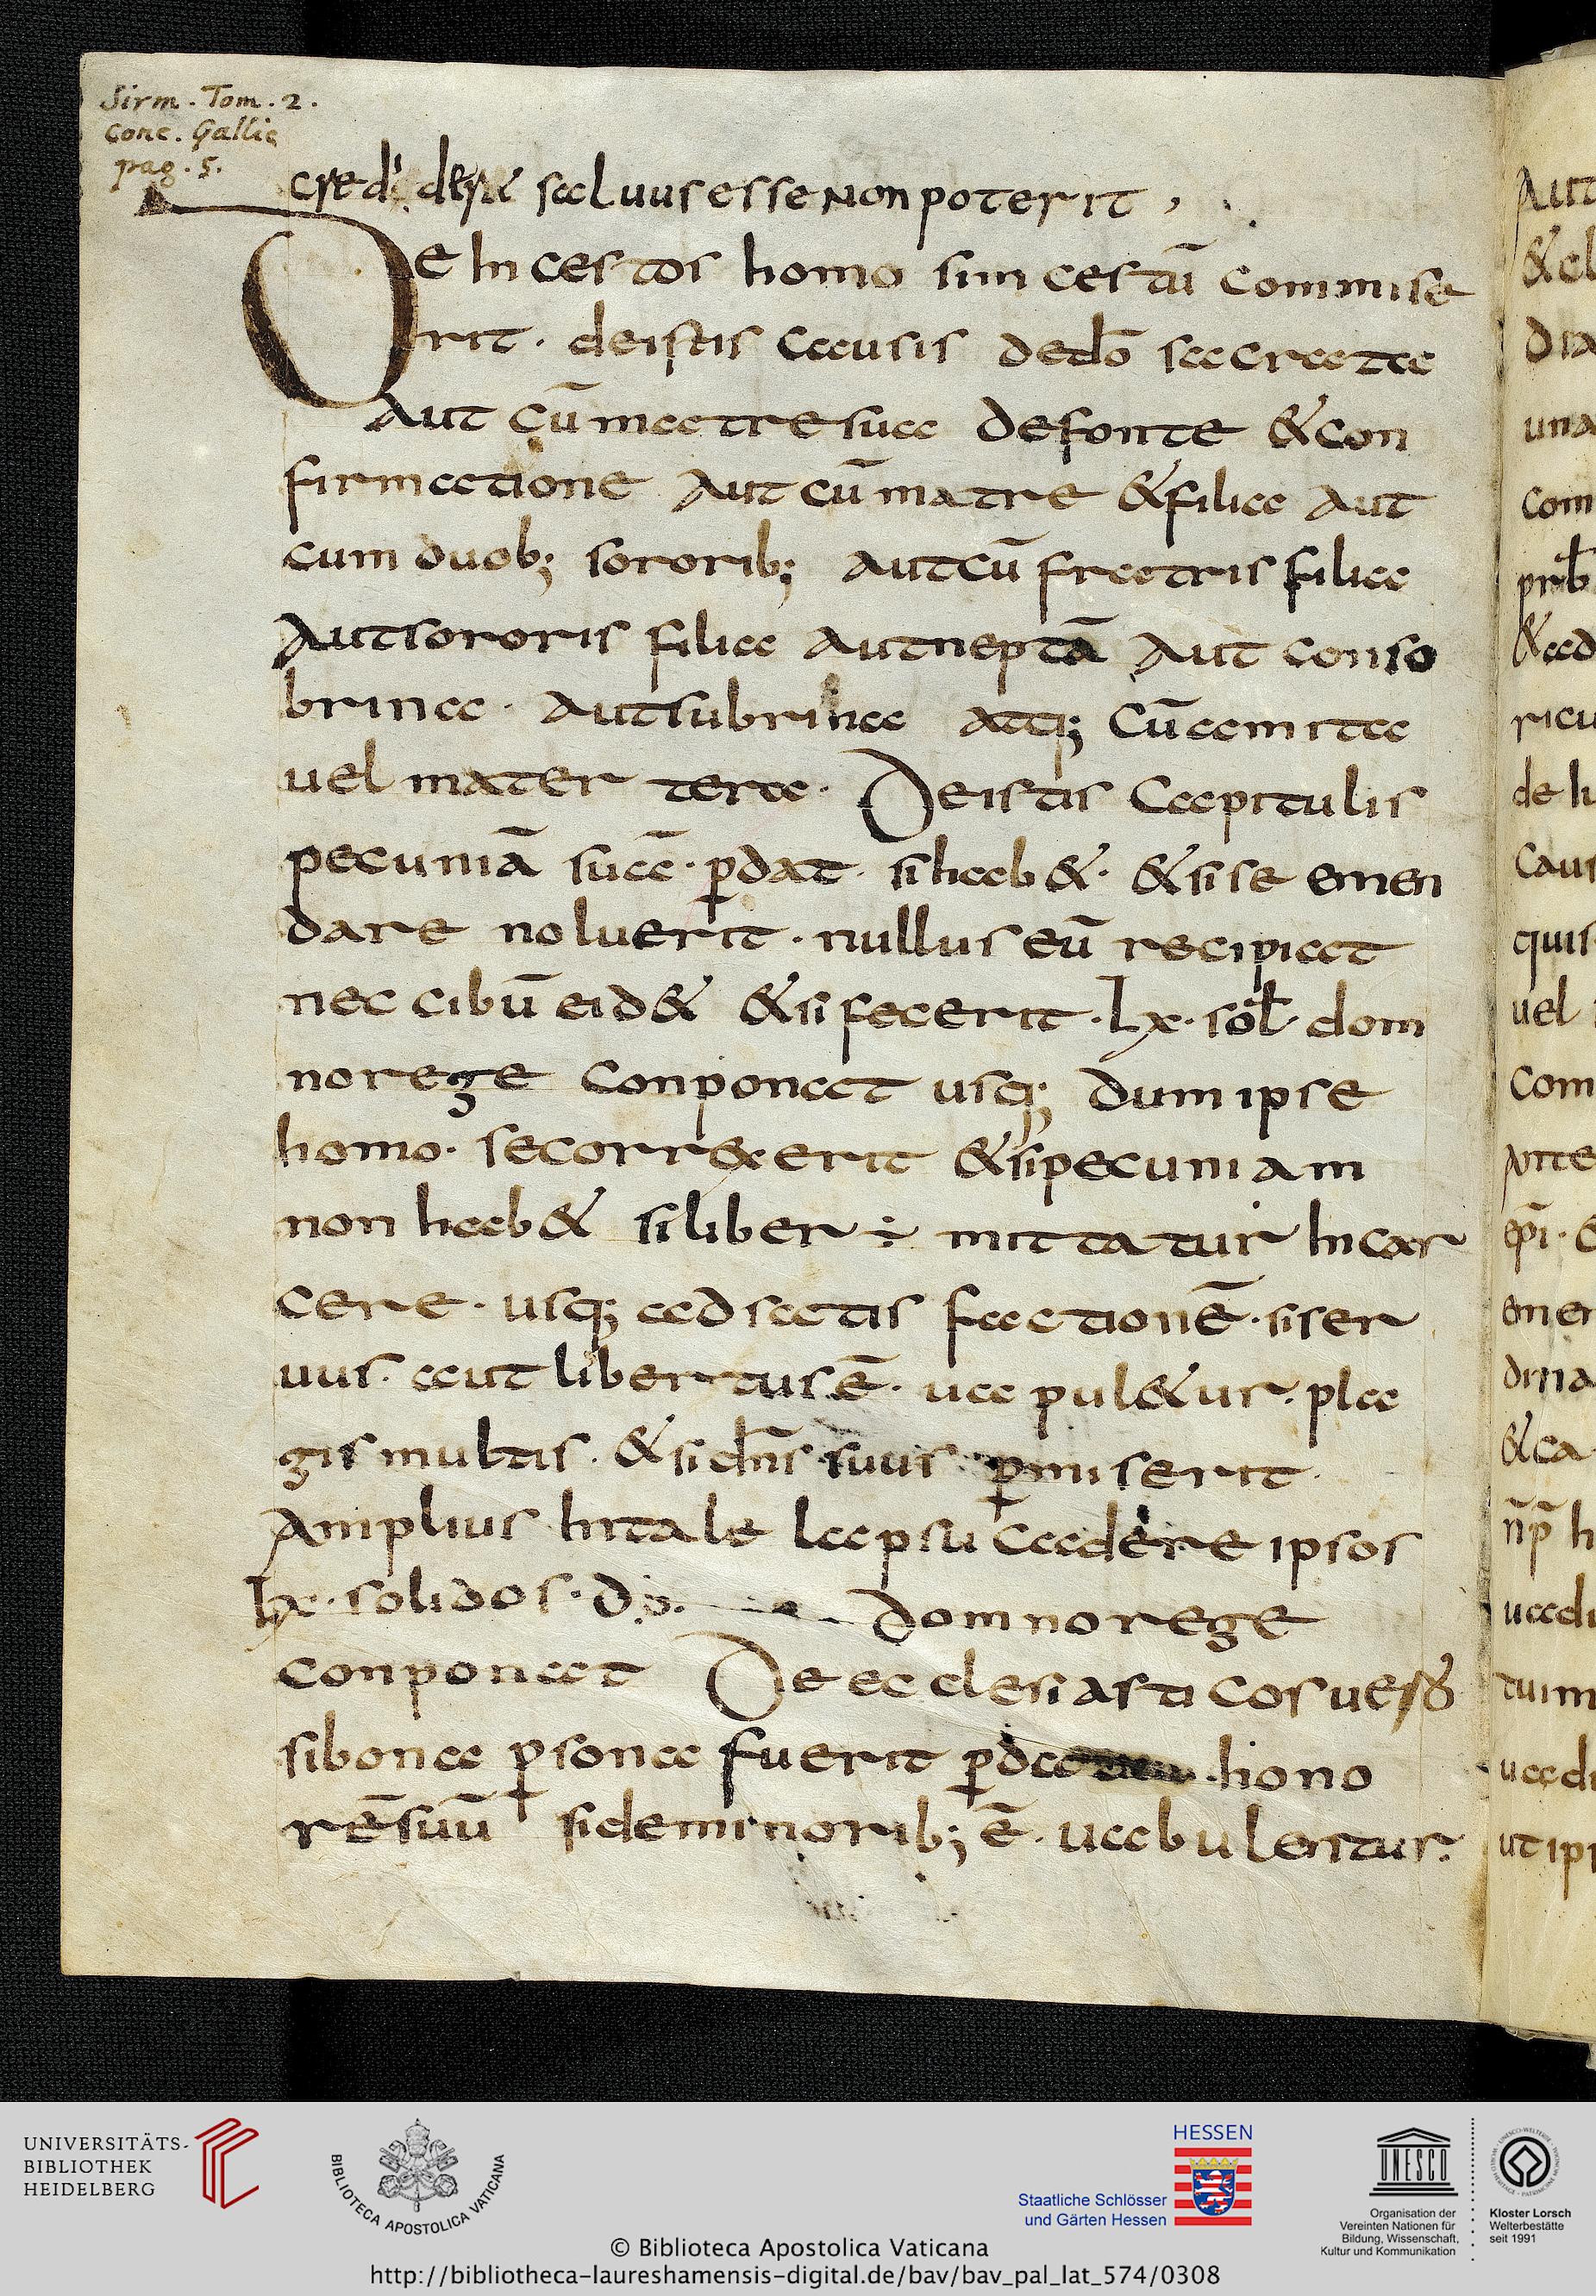 Sirm. Tom. 2.
Conc. Gallię
pag. 5.
saluus esse non poterit,
De Incestos homo si incestū commise
rit · de istis causis de dō sacrata
aut cū matre sua de fonte & con
firmatione aut cū matre & filia aut
cum duob; sororib; aut cū fratris filia
aut sororis filia aut neptā aut conso
brina · aut subrina atq; cū amita
uel mater tera · De istis capitulis
pecuniā suā · p̱dat · si hab& · & si se emen
dare noluerit · nullus eū recipiat
nec cibū ei d& & si fecerit · lx · sol̄ dom
no rege conponat usq; dum ipse
homo · se correxerit & si pecuniam
non hab& si liber ÷ mittatur In car
cere · usq; ad satis factionē · si ser
uus · aut libertus ē · uapul&ur · pla
gis multis · & si dn̄s suus p̱miserit ·
amplius In tale lapsū cadere ipsos
lx · solidos · domno rege
conponat De ecclesiasticos uero
si bona p̱sona fuerit p̱dat hono
rē suū si de minorib; ē · uabulentur ·
UNIVERSITÄTS-
BIBLIOTHEK
HEIDELBERG
BIBLIOTECA APOSTOLICA VATICANA
HESSEN
Staatliche Schlösser
und Gärten Hessen
UNESCO
Organisation der
Vereinten Nationen für
Bildung, Wissenschaft,
Kultur und Kommunikation
Kloster Lorsch
Welterbestätte
seit 1991
© Biblioteca Apostolica Vaticana
http://bibliotheca-laureshamensis-digital.de/bav/bav_pal_lat_574/0308